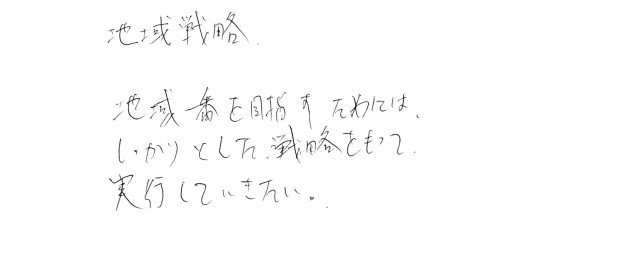 地域戦略.
地域番を目指すためには、
しっかりとした、戦略をもって、
実行していきたい。